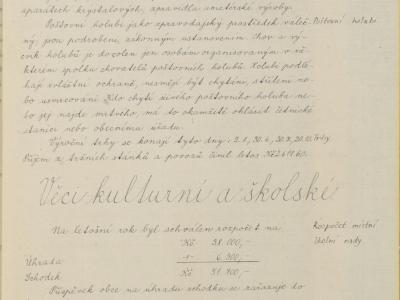 aparátech krystalových, zpravidla amatérské výroby.
Poštovní holubi jako zpravodajský prostředek váleč- Poštovní holubi
ný, jsou podrobeni zákonným ustanovením. Chov a vý-
cvik holubů je dovolen jen osobám organisovaným v ně-
kterém spolku chovatelů poštovních holubů. Holubi podlé-
hají zvláštní ochraně, nesmějí být chytáni, stříleni ne-
bo usmrcováni. Kdo chytí živého poštovního holuba ne-
bo jej najde mrtvého, má to okamžitě ohlásit četnické
stanici nebo obecnímu úřadu.
Výroční trhy se konají tyto dny: 2.1., 30.6., 20.8., 20.10. Trhy
Příjem z tržních stánků a povozů činil letos Kč
Věci kulturní a školské
Na letošní rok byl schválen rozpočet na Rozpočet místní
Kč 38.000,- školní rady
Úhrada -"- 6.900,-
Schodek Kč 31.100,-
Příspěvek obce na úhradu schodku se zařazuje do